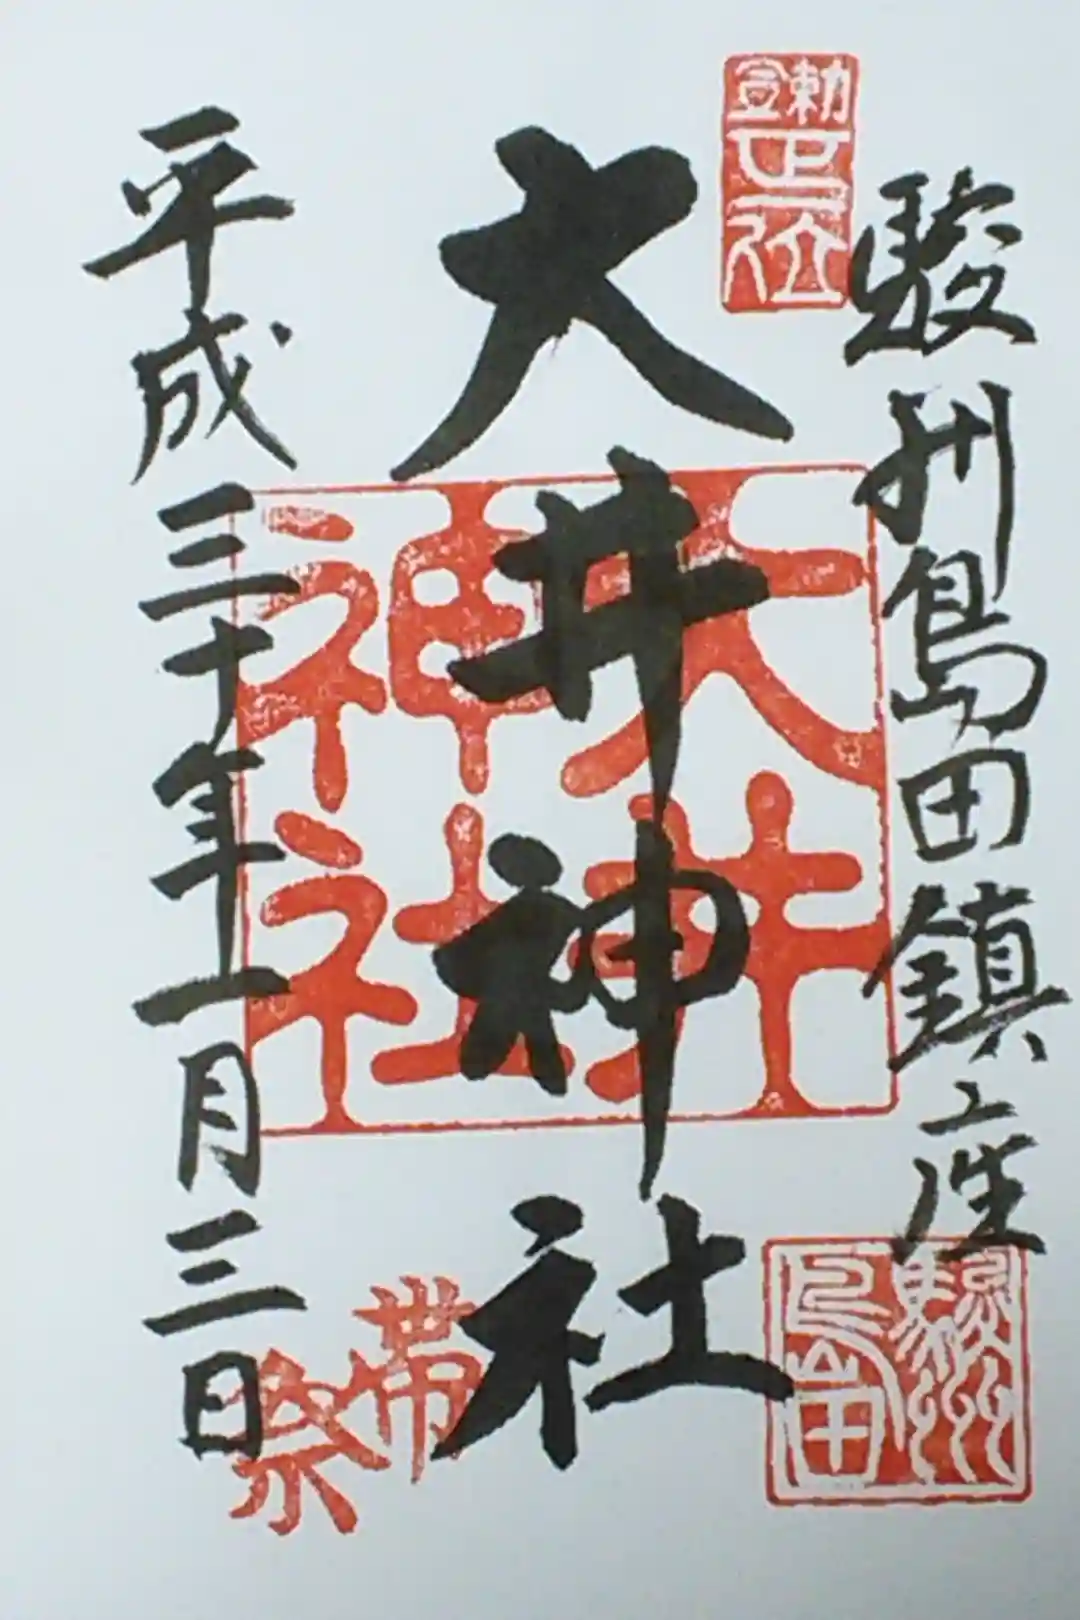 駿州島田鎮座
勅宣
正一位
駿州
島田
大井神社
大井
神社
帯
祭
平成三十年一月三日